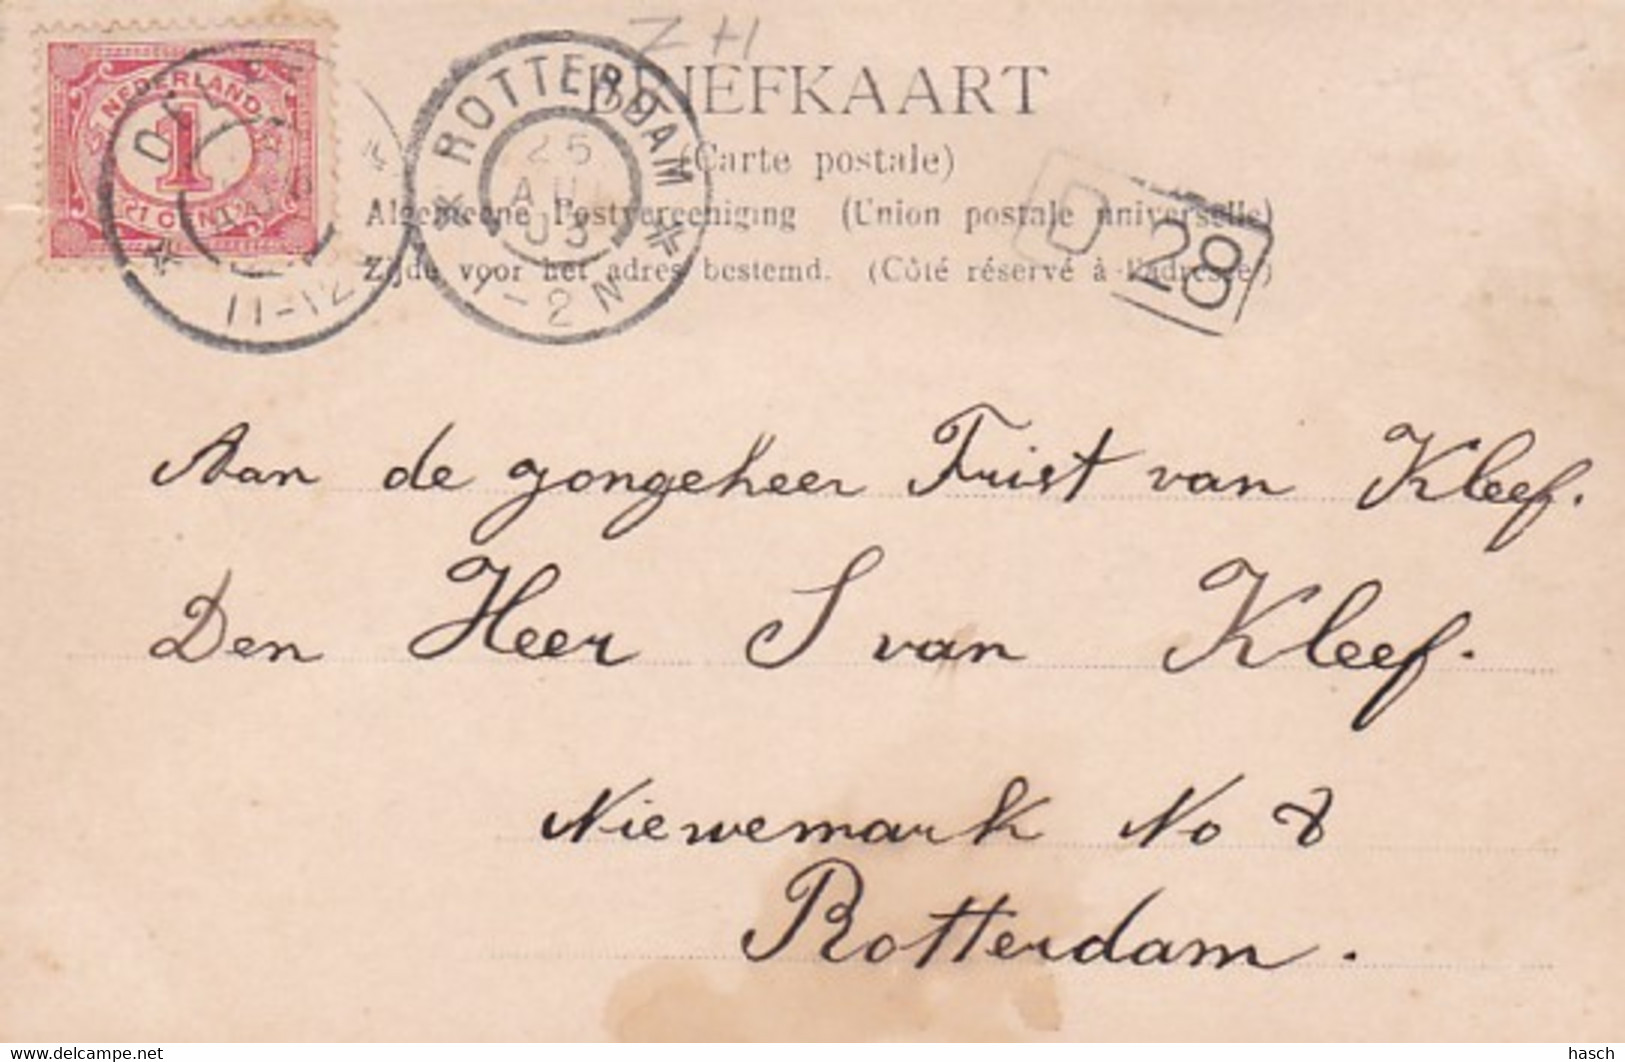 Z H
BRIEFKAART
(Carte postale)
Algemeene Postvereeniging (Union postale universelle)
Zijde voor het adres bestemd. (Côté réservé à l'adresse)
NEDERLAND
1
1 CENT
11-12
ROTTERDAM
25
AUG
03
1-2 N
D
28
Aan de jongeheer Frist van Kleef.
Den Heer S van Kleef.
Niewemark No 8
Rotterdam.
www.delcampe.net
hasch